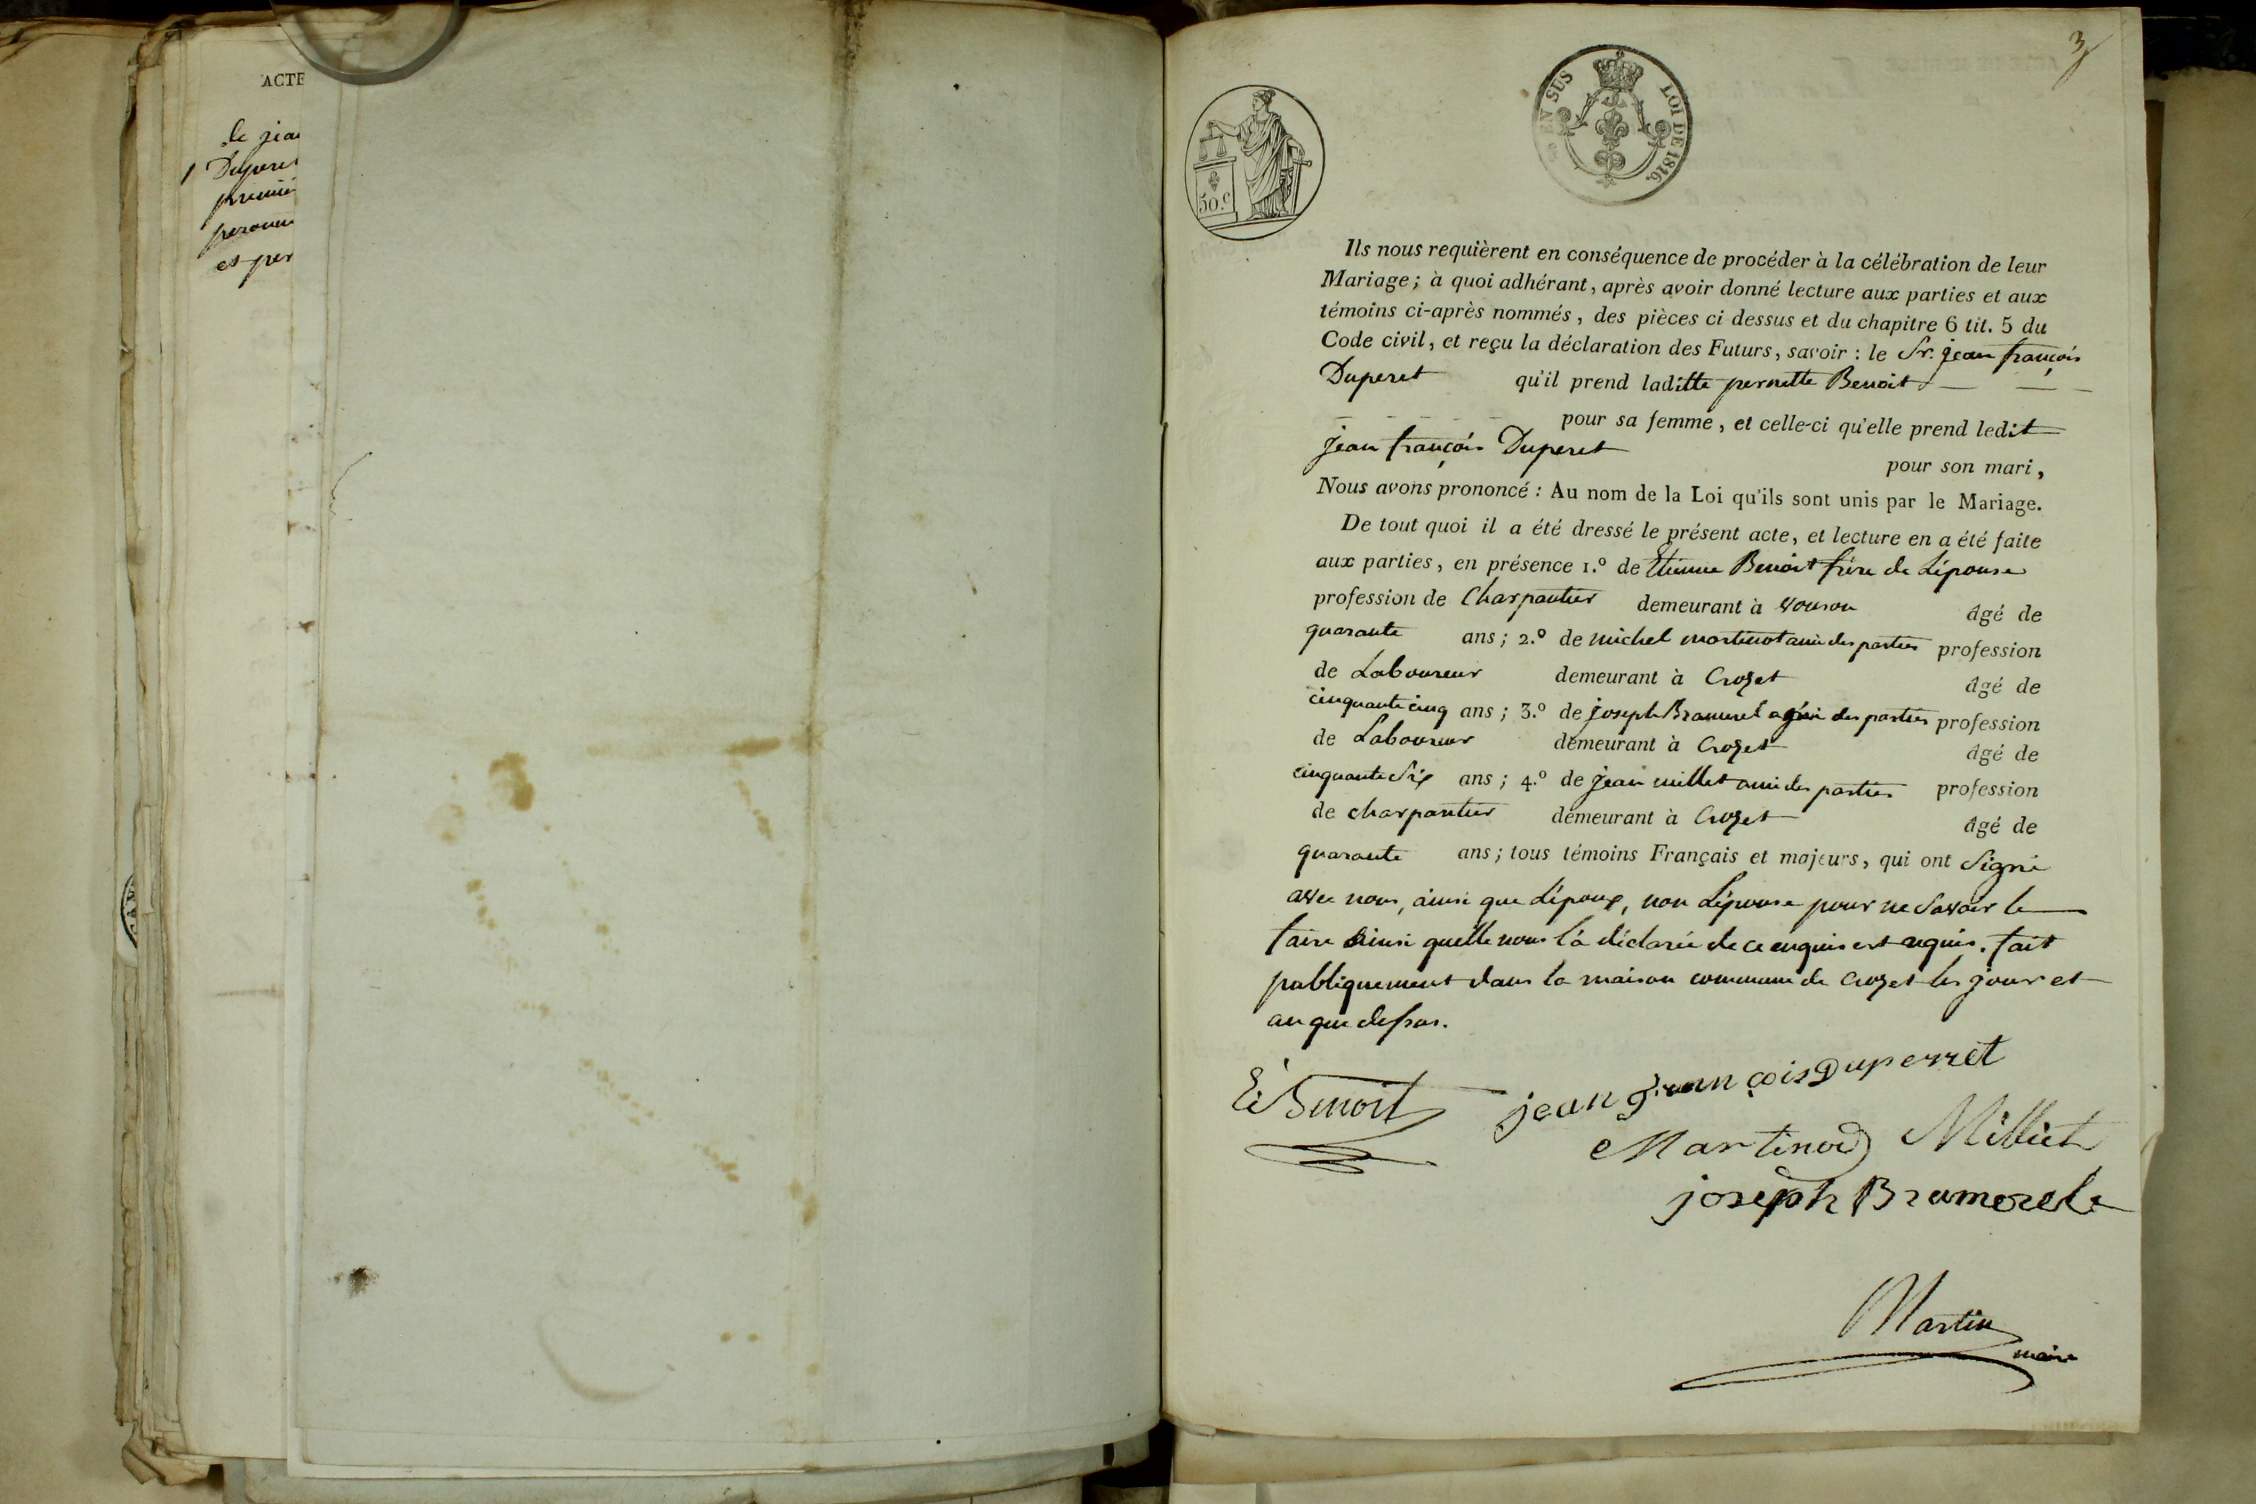 ACTE
de jea
Duperet
premié
et per
3
50.C
EN SUS
LOI DE 1816.
Ils nous requièrent en conséquence de procéder à la célébration de leur
Mariage; à quoi adhérant, après avoir donné lecture aux parties et aux
témoins ci-après nommés, des pièces ci dessus et du chapitre 6 tit. 5 du
Code civil, et reçu la déclaration des Futurs, savoir : le Sr. jean françois
Duperet qu'il prend laditte pernette Benoit
pour sa femme, et celle-ci qu'elle prend ledit
jean françois Duperet
pour son mari,
Nous avons prononcé : Au nom de la Loi qu'ils sont unis par le Mariage.
De tout quoi il a été dressé le présent acte, et lecture en a été faite
aux parties, en présence 1.º de Etienne Benoit frère de Lépouse
profession de Charpantier demeurant à vouson âgé de
quarante ans; 2.º de michel martinot ami des parties profession
de Laboureur demeurant à Crozet âgé de
cinquante cinq ans; 3.º de joseph Bramerel ami des parties profession
de Laboureur demeurant à Crozet âgé de
cinquante Six ans; 4.º de jean millet ami des parties profession
de charpantier demeurant à Crozet âgé de
quarante ans; tous témoins Français et majeurs, qui ont Signé
avec nous, ainsi que Lépoux, non Lépouse pour ne Savoir le
faire ainsi quelle nous l'a déclarée de ce enquis et requis. fait
publiquement dans la maison commune de Crozet les jour et
an que dessus.
Ee Benoit
jean françois Duperret
Martinod Milliet
joseph Bramerel
Martin
maire